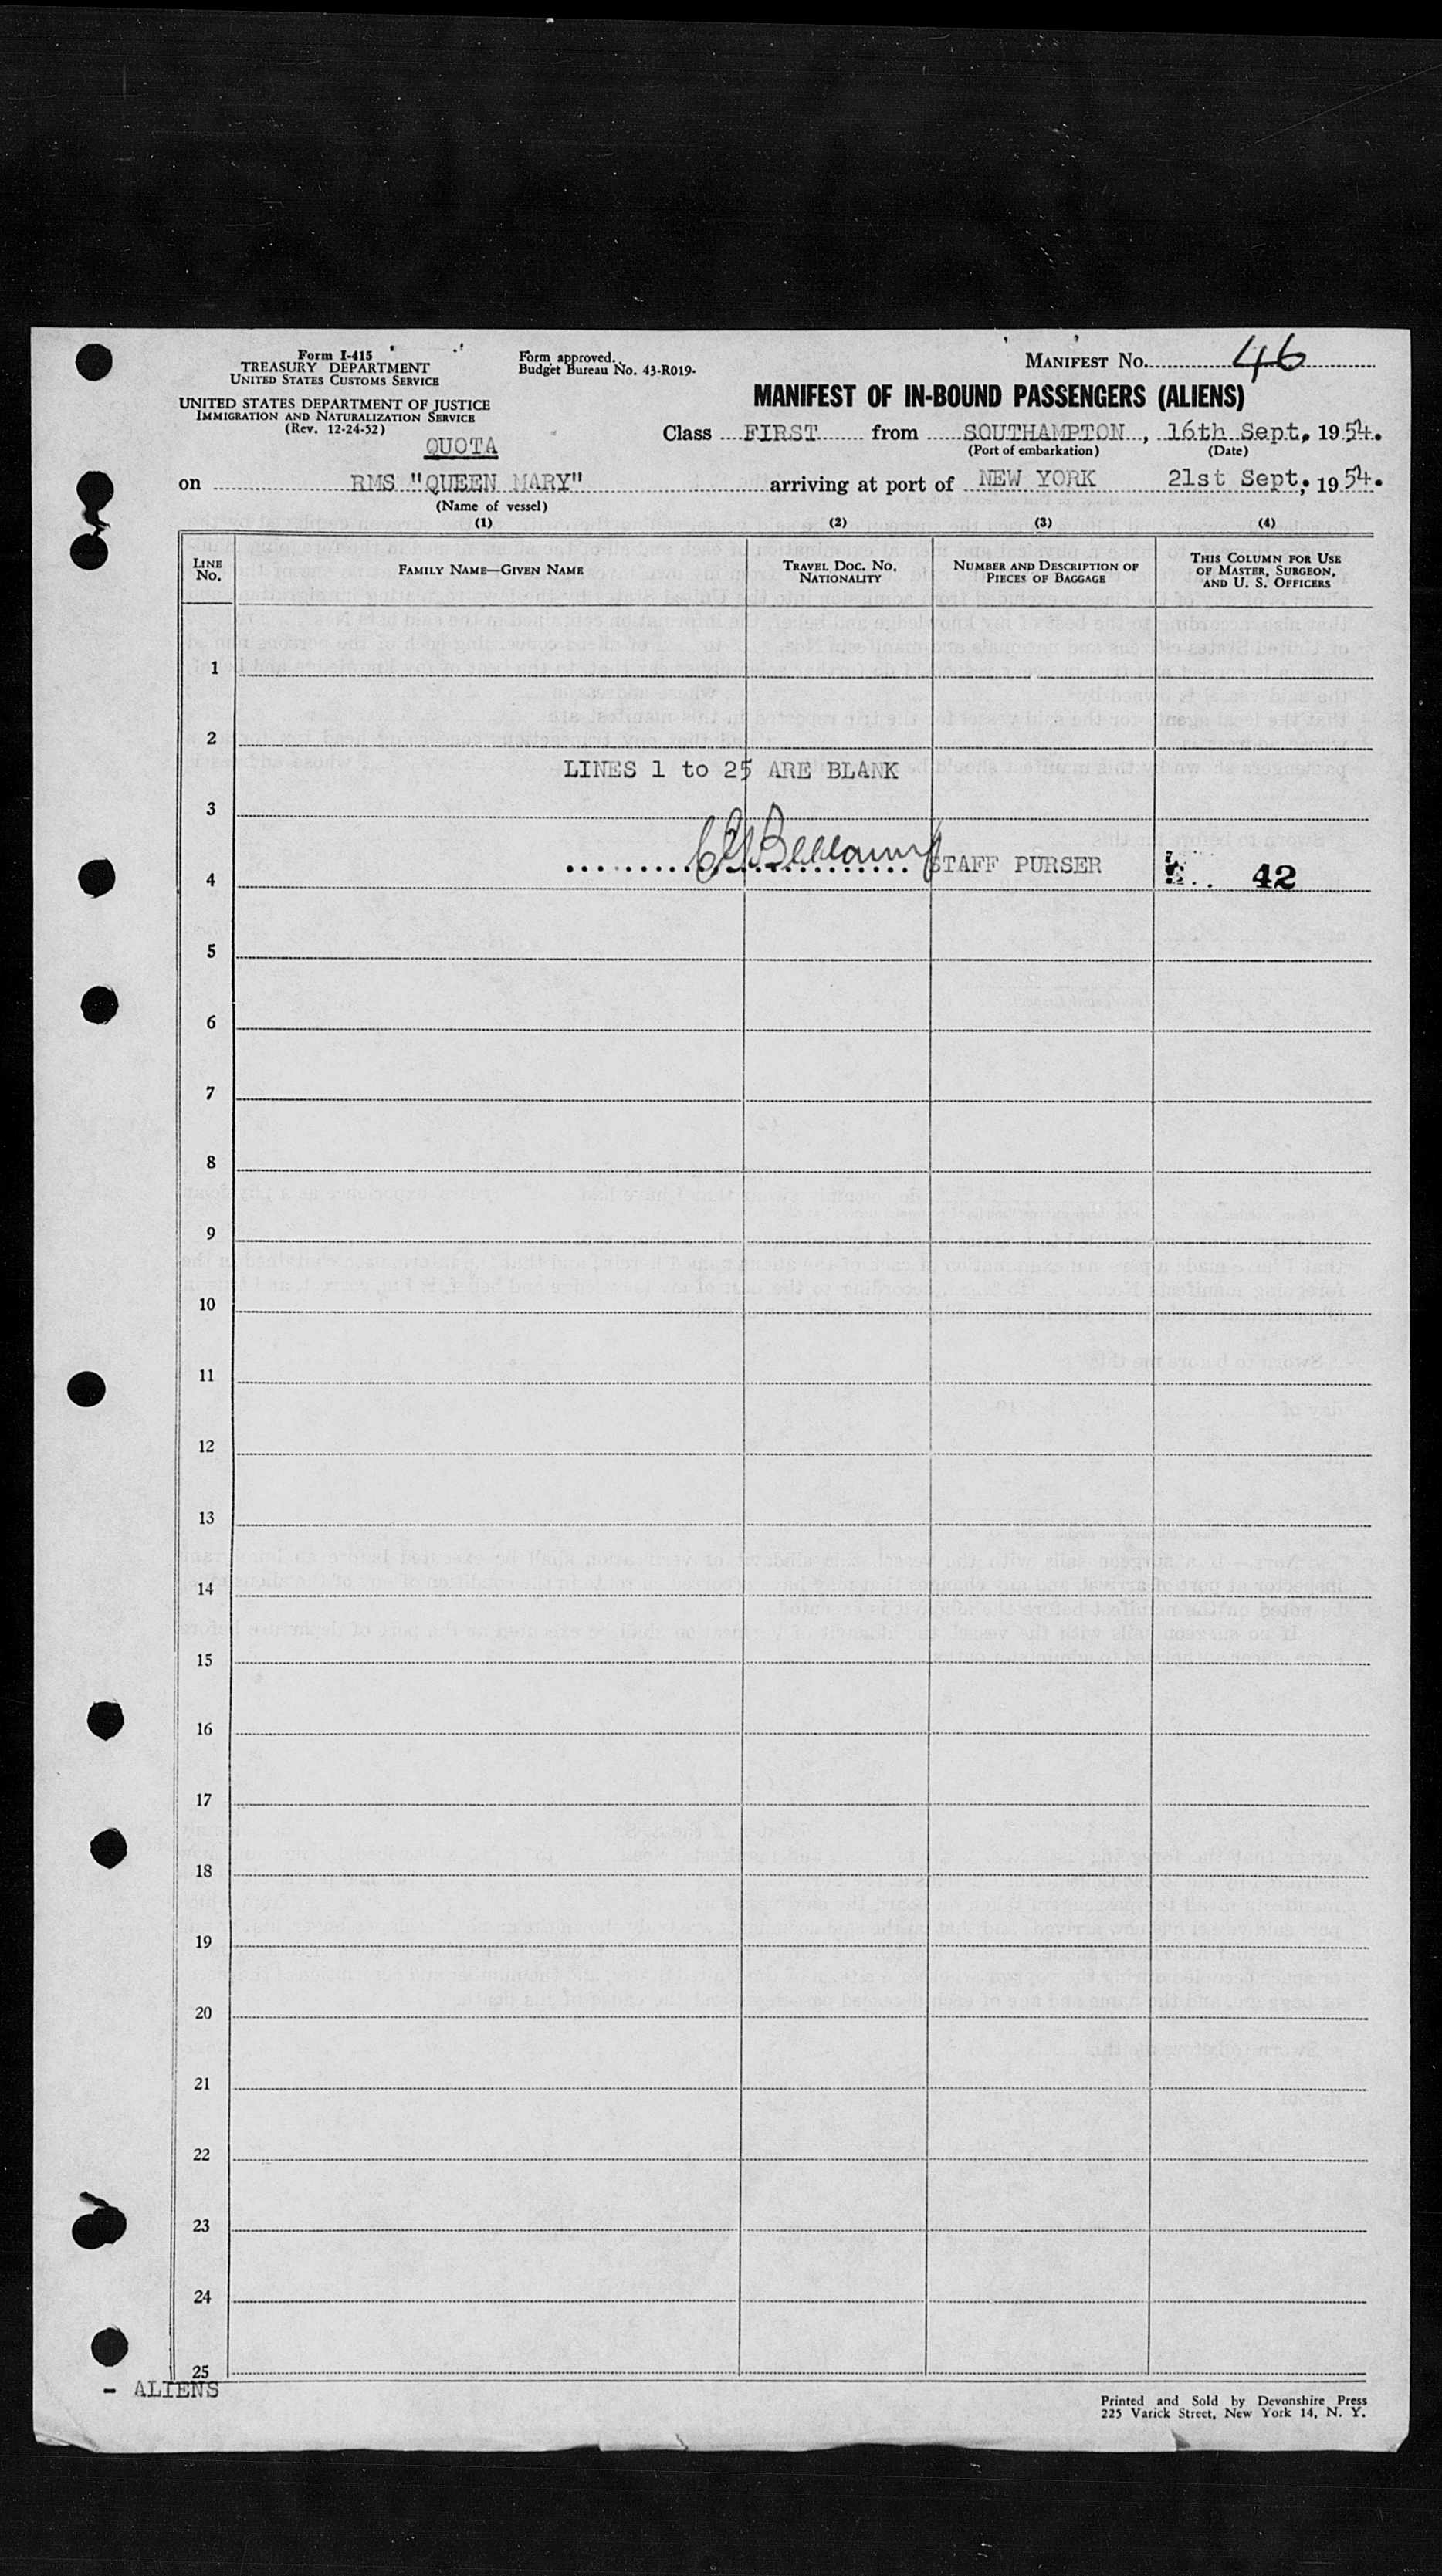 Form I-415
TREASURY DEPARTMENT
UNITED STATES CUSTOMS SERVICE
UNITED STATES DEPARTMENT OF JUSTICE
IMMIGRATION AND NATURALIZATION SERVICE
(Rev. 12-24-52)
QUOTA
Form approved.
Budget Bureau No. 43-R019-
MANIFEST No. 46
MANIFEST OF IN-BOUND PASSENGERS (ALIENS)
Class FIRST from SOUTHAMPTON, 16th Sept. 1954.
(Port of embarkation) (Date)
on RMS "QUEEN MARY" arriving at port of NEW YORK 21st Sept. 1954.
(Name of vessel)
(1) (2) (3) (4)
LINE No. FAMILY NAME—GIVEN NAME TRAVEL DOC. NO. NATIONALITY NUMBER AND DESCRIPTION OF PIECES OF BAGGAGE THIS COLUMN FOR USE OF MASTER, SURGEON, AND U. S. OFFICERS
1
2
LINES 1 to 25 ARE BLANK
3
4 Bellamy STAFF PURSER 42
5
6
7
8
9
10
11
12
13
14
15
16
17
18
19
20
21
22
23
24
25
- ALIENS
Printed and Sold by Devonshire Press
225 Varick Street, New York 14, N. Y.